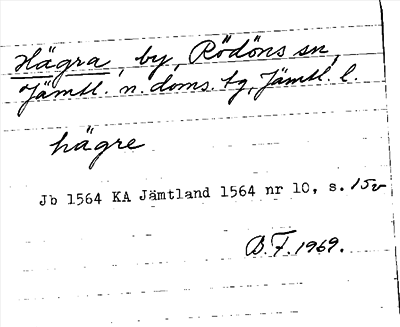 Hägra, by, Rödöns sn,
Jämtl. n. doms. tg, Jämtl. l.
hägre
Jb 1564 KA Jämtland 1564 nr 10, s. 15v
B.F. 1969.